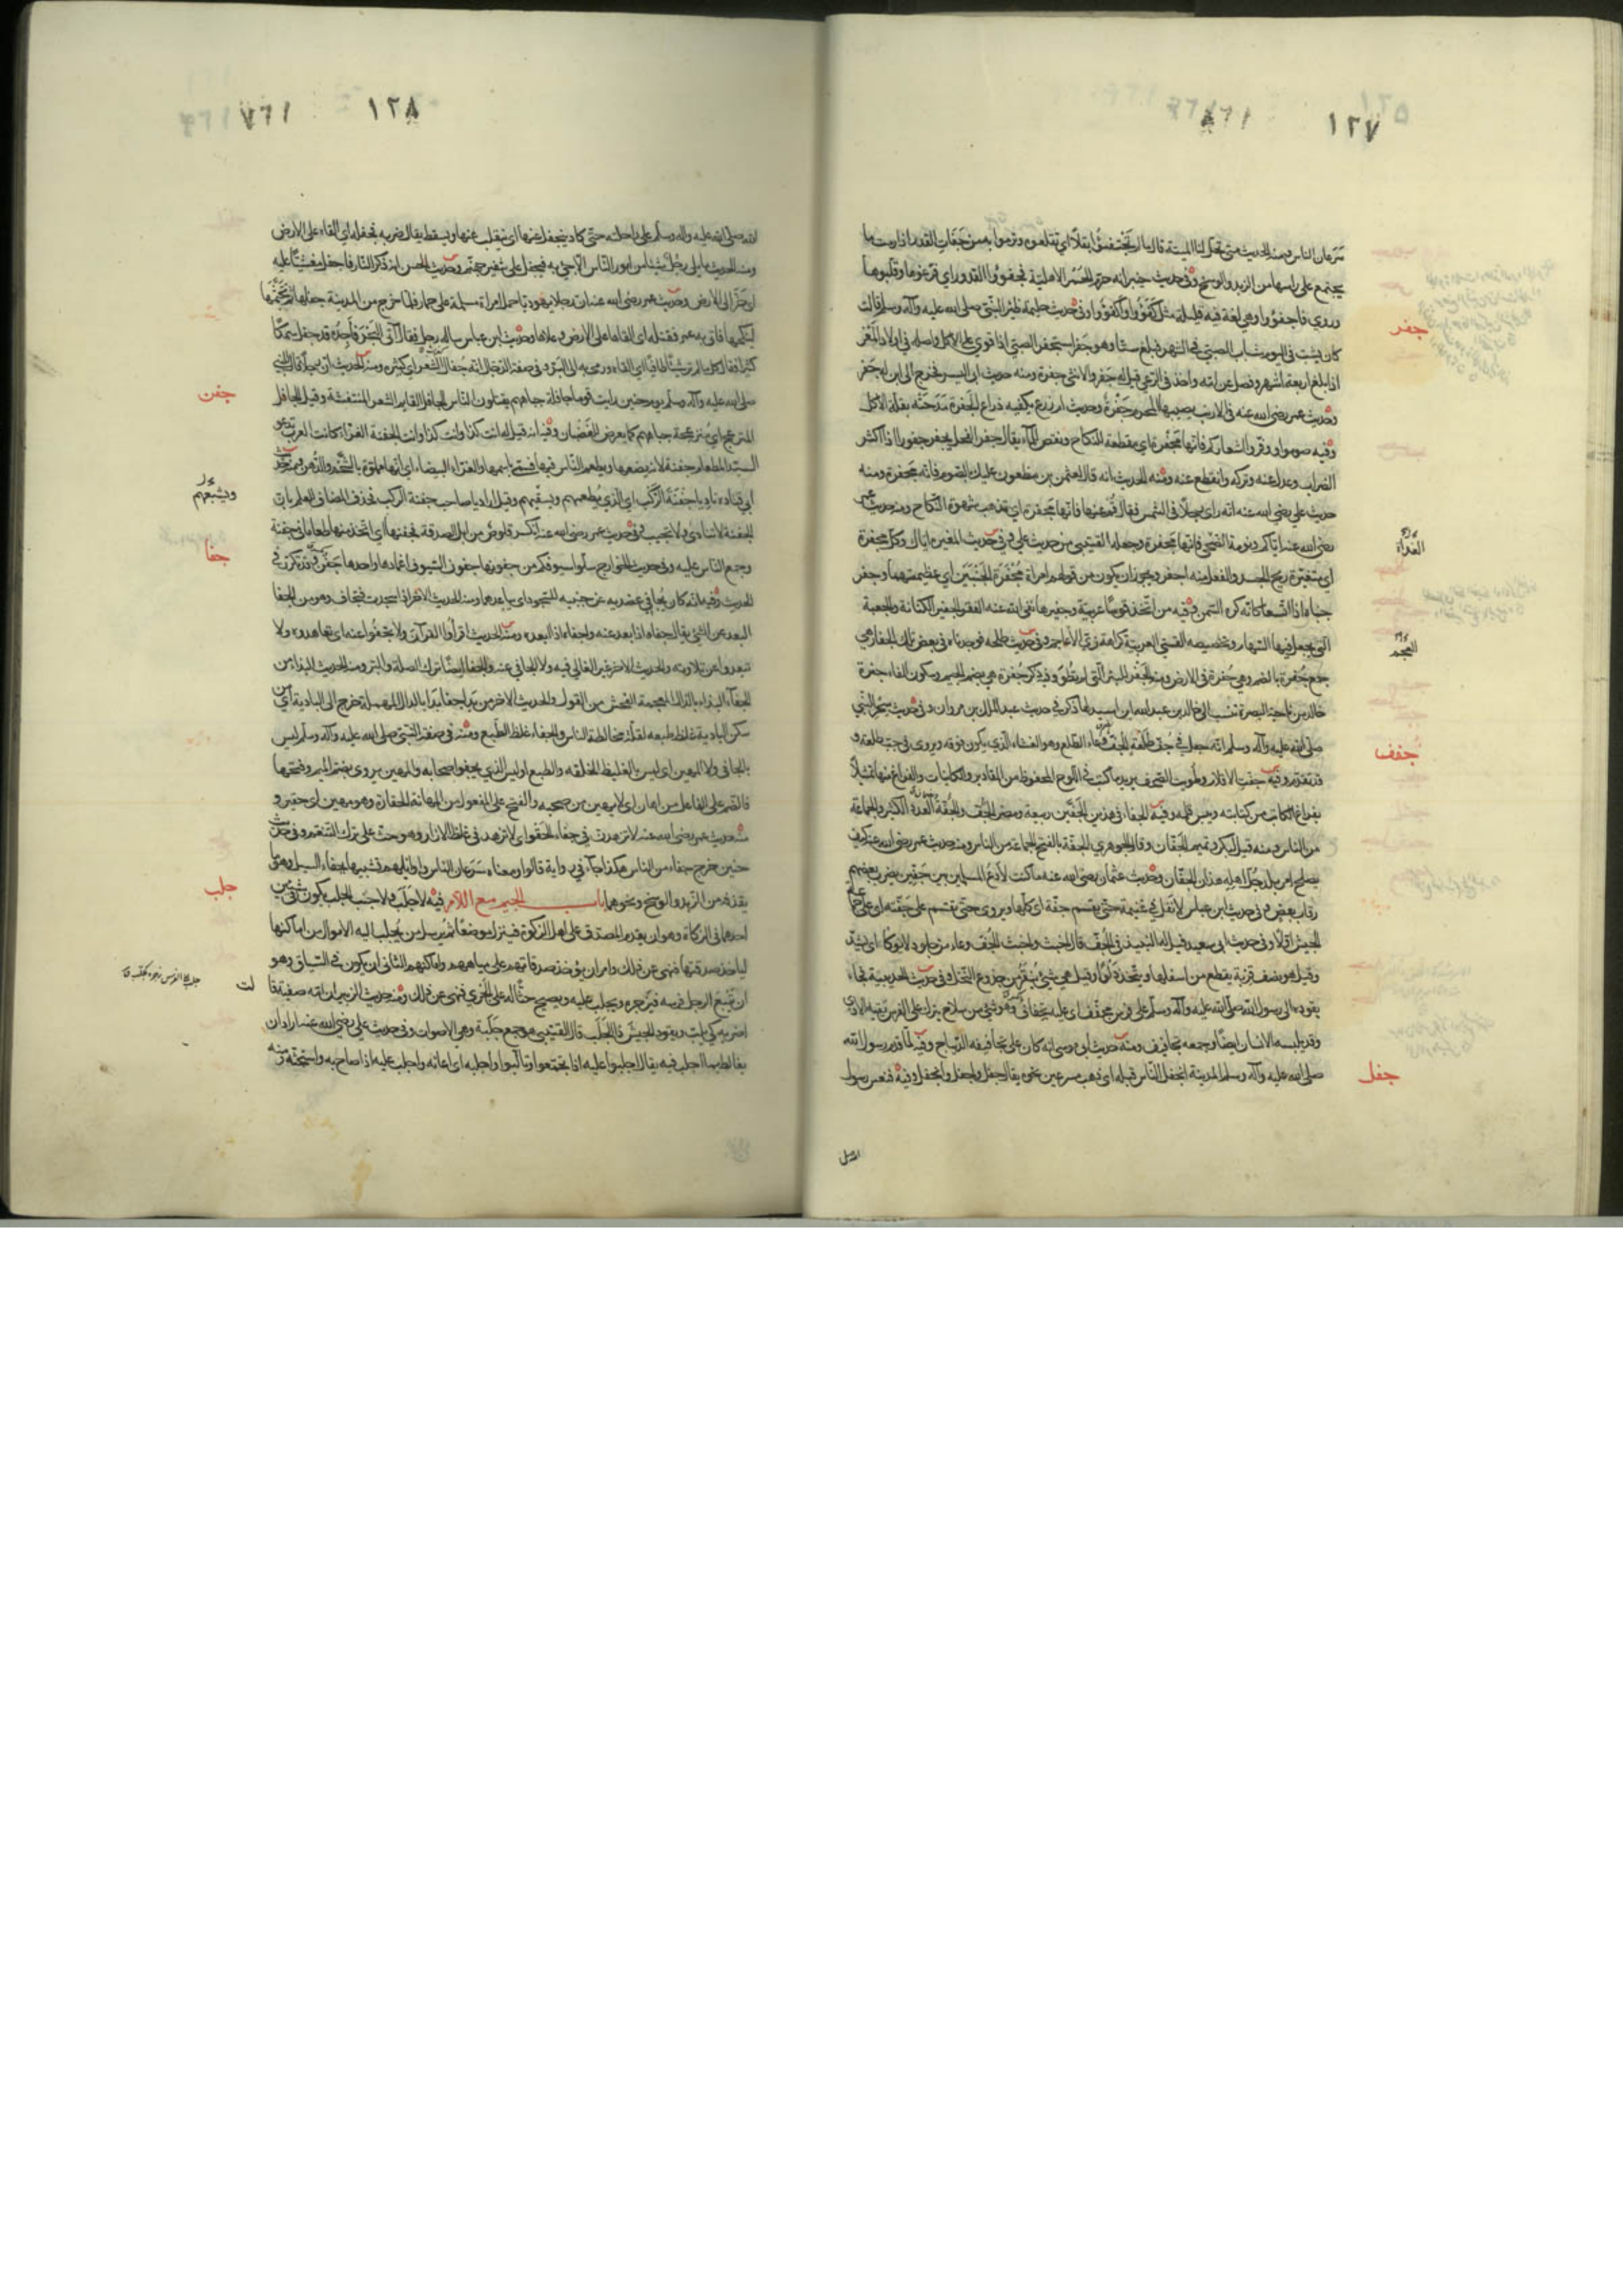 ١٢٧
سرعان الناس ومنه الحديث متى تحل لنا الميتة قال ما لم تجتفئوا بقلا اي تقتلعوه وترموا به من جفأت القدر اذا رمت بما
يجتمع على راسها من الزبد والوسخ وفي حديث خيبر انه حرم الحمر الاهلية فجفؤا القدور اي فرغوها وقلبوها
وروي فاجفؤا وهي لغة فيه قليلة مثل كفؤا واكفؤا وفي حديث حليمة ظئر النبي صلى الله عليه وآله وسلم قالت
جفر
كان يشب في اليوم شباب الصبي في الشهر فبلغ ستا وهو جفر استجفر الصبي اذا قوي على الاكل واصله في اولاد المعز
اذا بلغ اربعة اشهر وفصل عن امه واخذ في الرعي قيل له جفر والانثى جفرة ومنه حديث ابي اليسر فخرج الي ابن له جفر
وحديث عمر رضي الله عنه في الارنب يصيبها المحرم جفرة وحديث ام زرع يكفيه ذراع الجفرة مدحته بقلة الاكل
وفيه صوموا ووفروا اشعاركم فانها مجفرة اي مقطعة للنكاح ونقص للماء يقال جفر الفحل يجفر جفورا اذا اكثر
الضراب وعدل عنه وتركه وانقطع عنه ومنه الحديث انه قال لعثمن بن مظعون عليك بالصوم فانه مجفرة ومنه
حديث علي رضي الله عنه انه راى رجلا في الشمس فقال قم عنها فانها مجفرة اي تذهب شهوة النكاح ومنه حديث عمر
رضي الله عنه اياكم ونومة الغداة فانها مجفرة وجعله القتيبي من حديث علي وفي حديث المغيرة اياك وكل مجفرة
الغداة
اي متغيرة ريح الجسد والفعل منه اجفر ويجوز ان يكون من قولهم امراة مجفرة الجنبين اي عظيمتهما وجفر
جنباه اذا اتسعا كانه كره السمن وفيه من اتخذ قوسا عربية وجفيرها نفى الله عنه الفقر الجفير الكنانة والجعبة
التي يجعل فيها السهام وتخصيصه القسي العربية كراهة زي الاعاجم وفي حديث طلحة فوجدناه في بعض تلك الجفار هي
العجم
جمع جفرة بالضم وهي حفرة في الارض ومنه الجفر للبئر التي لم تطو وفيه ذكر جفرة هي بضم الجيم وسكون الفاء جفرة
خالد من ناحية البصرة تنسب الى خالد بن عبد الله بن اسيد لها ذكر في حديث عبد الملك بن مروان وفي حديث سحر النبي
صلى الله عليه وآله وسلم انه جعل في جف طلعة الجف وعاء الطلع وهو الغشاء الذي يكون فوقه ويروى في جب طلعة و
جفف
قد تقدم وفيه جفت الاقلام وطويت الصحف يريد ما كتب في اللوح المحفوظ من المقادير والكاينات والفراغ منها تمثيلا
بفراغ الكاتب من كتابته ويبس قلمه وفيه الجفاء في هذين الجفين ربيعة ومضر الجف والجفة العدد الكثير والجماعة
من الناس ومنه قيل لبكر وتميم الجفان وقال الجوهري الجفة بالفتح الجماعة من الناس ومنه حديث عمر رضي الله عنه كيف
يصلح امر بلد جل اهله هذان الجفان وحديث عثمان رضي الله عنه ما كنت لادع المسلمين بين جفين يضرب بعضهم
رقاب بعض وفي حديث ابن عباس لا نفل في غنيمة حتى يقسم جفة اي كلها ويروى حتى تقسم على جفته اي على جماعة
الجيش اولا وفي حديث ابي سعيد قيل له النبيذ في الجف قال اخبث واخبث الجف وعاء من جلود لا يوكا اي لا يشد
وقيل هو نصف قربة يقطع من اسفلها ويتخذ دلوا وقيل هي شيء ينقر من جذوع النخل وفي حديث الحديبية فجاء
يقوده الى رسول الله صلى الله عليه وآله وسلم على فرس مجفف اي عليه تجفاف وهو شيء من سلاح يترك على الفرس يقيه الاذى
وقد يلبسه الانسان ايضا وجمعه تجافيف ومنه حديث ابي موسى انه كان على تجافيفه الديباج وفيه لما قدم رسول الله
صلى الله عليه وآله وسلم المدينة انجفل الناس قبله اي ذهبوا مسرعين نحوه يقال جفل واجفل وانجفل وفيه فنعس رسول
جفل
١٢٨
الله صلى الله عليه وآله وسلم على راحلته حتى كاد ينجفل عنها اي ينقلب عنها ويسقط يقال ضربه فجفله اي القاه على الارض
ومنه الحديث ما يلي رجل شيئا من امور الناس الا جيء به فيجفل على شفير جهنم وحديث الحسن انه ذكر النار فاجفل مغشيا عليه
اي خر الى الارض وحديث عمر رضي الله عنه ان رجلا يهوديا حمل امراة مسلمة على حمار فلما خرج من المدينة جفلها ثم تجثمها
لينكحها فاتي به عمر فقتله اي القاها على الارض وعلاها وحديث ابن عباس ساله رجل فقال آتي البحر فاجده قد جفل سمكا
كثيرا فقال كل ما لم تر شيئا طافيا اي القاه ورمى به الى البر وفي صفة الدجال انه جفال الشعر اي كثيره ومنه الحديث ان رجلا قال للنبي
صلى الله عليه وآله وسلم يوم حنين رايت قوما جافلة جباههم يقتلون الناس الجافل القايم الشعر المنتفشة وقيل الجافل
جفن
المنزعج اي منزعجة جباههم كما يعرض للغضبان وفيه انه قيل له انت كذا وانت كذا وانت الجفنة الغراء كانت العرب تدعو
السيد المطعام جفنة لانه يضعها ويطعم الناس فيها فسمي باسمها والغراء البيضاء اي انها مملوة بالشحم والدهن ومنه حديث
ابي قتادة ناد يا جفنة الركب اي الذي يطعمهم ويشبعهم وقيل اراد يا صاحب جفنة الركب فحذف المضاف للعلم بان
ويشبعهم
الجفنة لا تنادى ولا تجيب وفي حديث عمر رضي الله عنه انكسر قلوص من ابل الصدقة فجفنها اي اتخذ منها طعاما في جفنة
وجمع الناس عليه وفي حديث الخوارج سلوا سيوفكم من جفونها جفون السيوف اغمادها واحدها جفن وقد تكرر في
جفا
الحديث وفيه انه كان يجافي عضديه عن جنبيه للسجود اي يباعدهما ومنه الحديث الاخر اذا سجدت فتجاف وهو من الجفاء
البعد عن الشيء يقال جفاه اذا بعد عنه واجفاه اذا ابعده ومنه الحديث اقرأوا القرآن ولا تجفوا عنه اي تعاهدوه ولا
تبعدوا عن تلاوته والحديث الاخر غير الغالي فيه ولا الجافي عنه والجفاء ايضا ترك الصلة والبر ومنه الحديث البذاء من
الجفاء البذاء بالذال المعجمة الفحش من القول والحديث الاخر من بدا جفا بدا بالدال المهملة خرج الى البادية اي من
سكن البادية غلظ طبعه لقلة مخالطة الناس والجفاء غلظ الطبع ومنه في صفة النبي صلى الله عليه وآله وسلم ليس
بالجافي ولا المهين اي ليس بالغليظ الخلقه والطبع او ليس الذي يجفو اصحابه والمهين يروى بضم الميم وفتحها
فالضم على الفاعل من اهان اي لا يهين من صحبه والفتح على المفعول من المهانة الحقارة وهو مهين اي حقير و
منه حديث عمر رضي الله عنه لا تزهدن في جفاء الحقو اي لا تزهد في غلظ الازار وهو حث على ترك التنعم وفي حديث
حنين خرج جفاء من الناس هكذا جاء في رواية قالوا ومعناه سرعان الناس واوايلهم تشبيها بجفاء السيل وهو ما
يقذفه من الزبد والوسخ ونحوهما باب الجيم مع اللام فيه لا جلب ولا جنب الجلب يكون في شيئين
جلب
احدهما في الزكاة وهو ان يقدم المصدق على اهل الزكوة فينزل موضعا ثم يرسل من يجلب اليه الاموال من اماكنها
لياخذ صدقتها فنهى عن ذلك وامر ان يؤخذ صدقاتهم على مياههم واماكنهم الثاني ان يكون في السباق وهو
ان يتبع الرجل فرسه فيزجره ويجلب عليه ويصيح حثا له على الجري فنهى عن ذلك ومنه حديث الزبير ان امه صفية قا
لت
اضربه كي يلب ويقود الجيش ذا الجلب قال القتيبي هو جمع جلبة وهي الاصوات وفي حديث علي رضي الله عنه اراد ان
يغالط بما اجلب فيه يقال اجلبوا عليه اذا تجمعوا وتألبوا واجلبه اي اعانه واجلب عليه اذا صاح به واستحثه ومنه